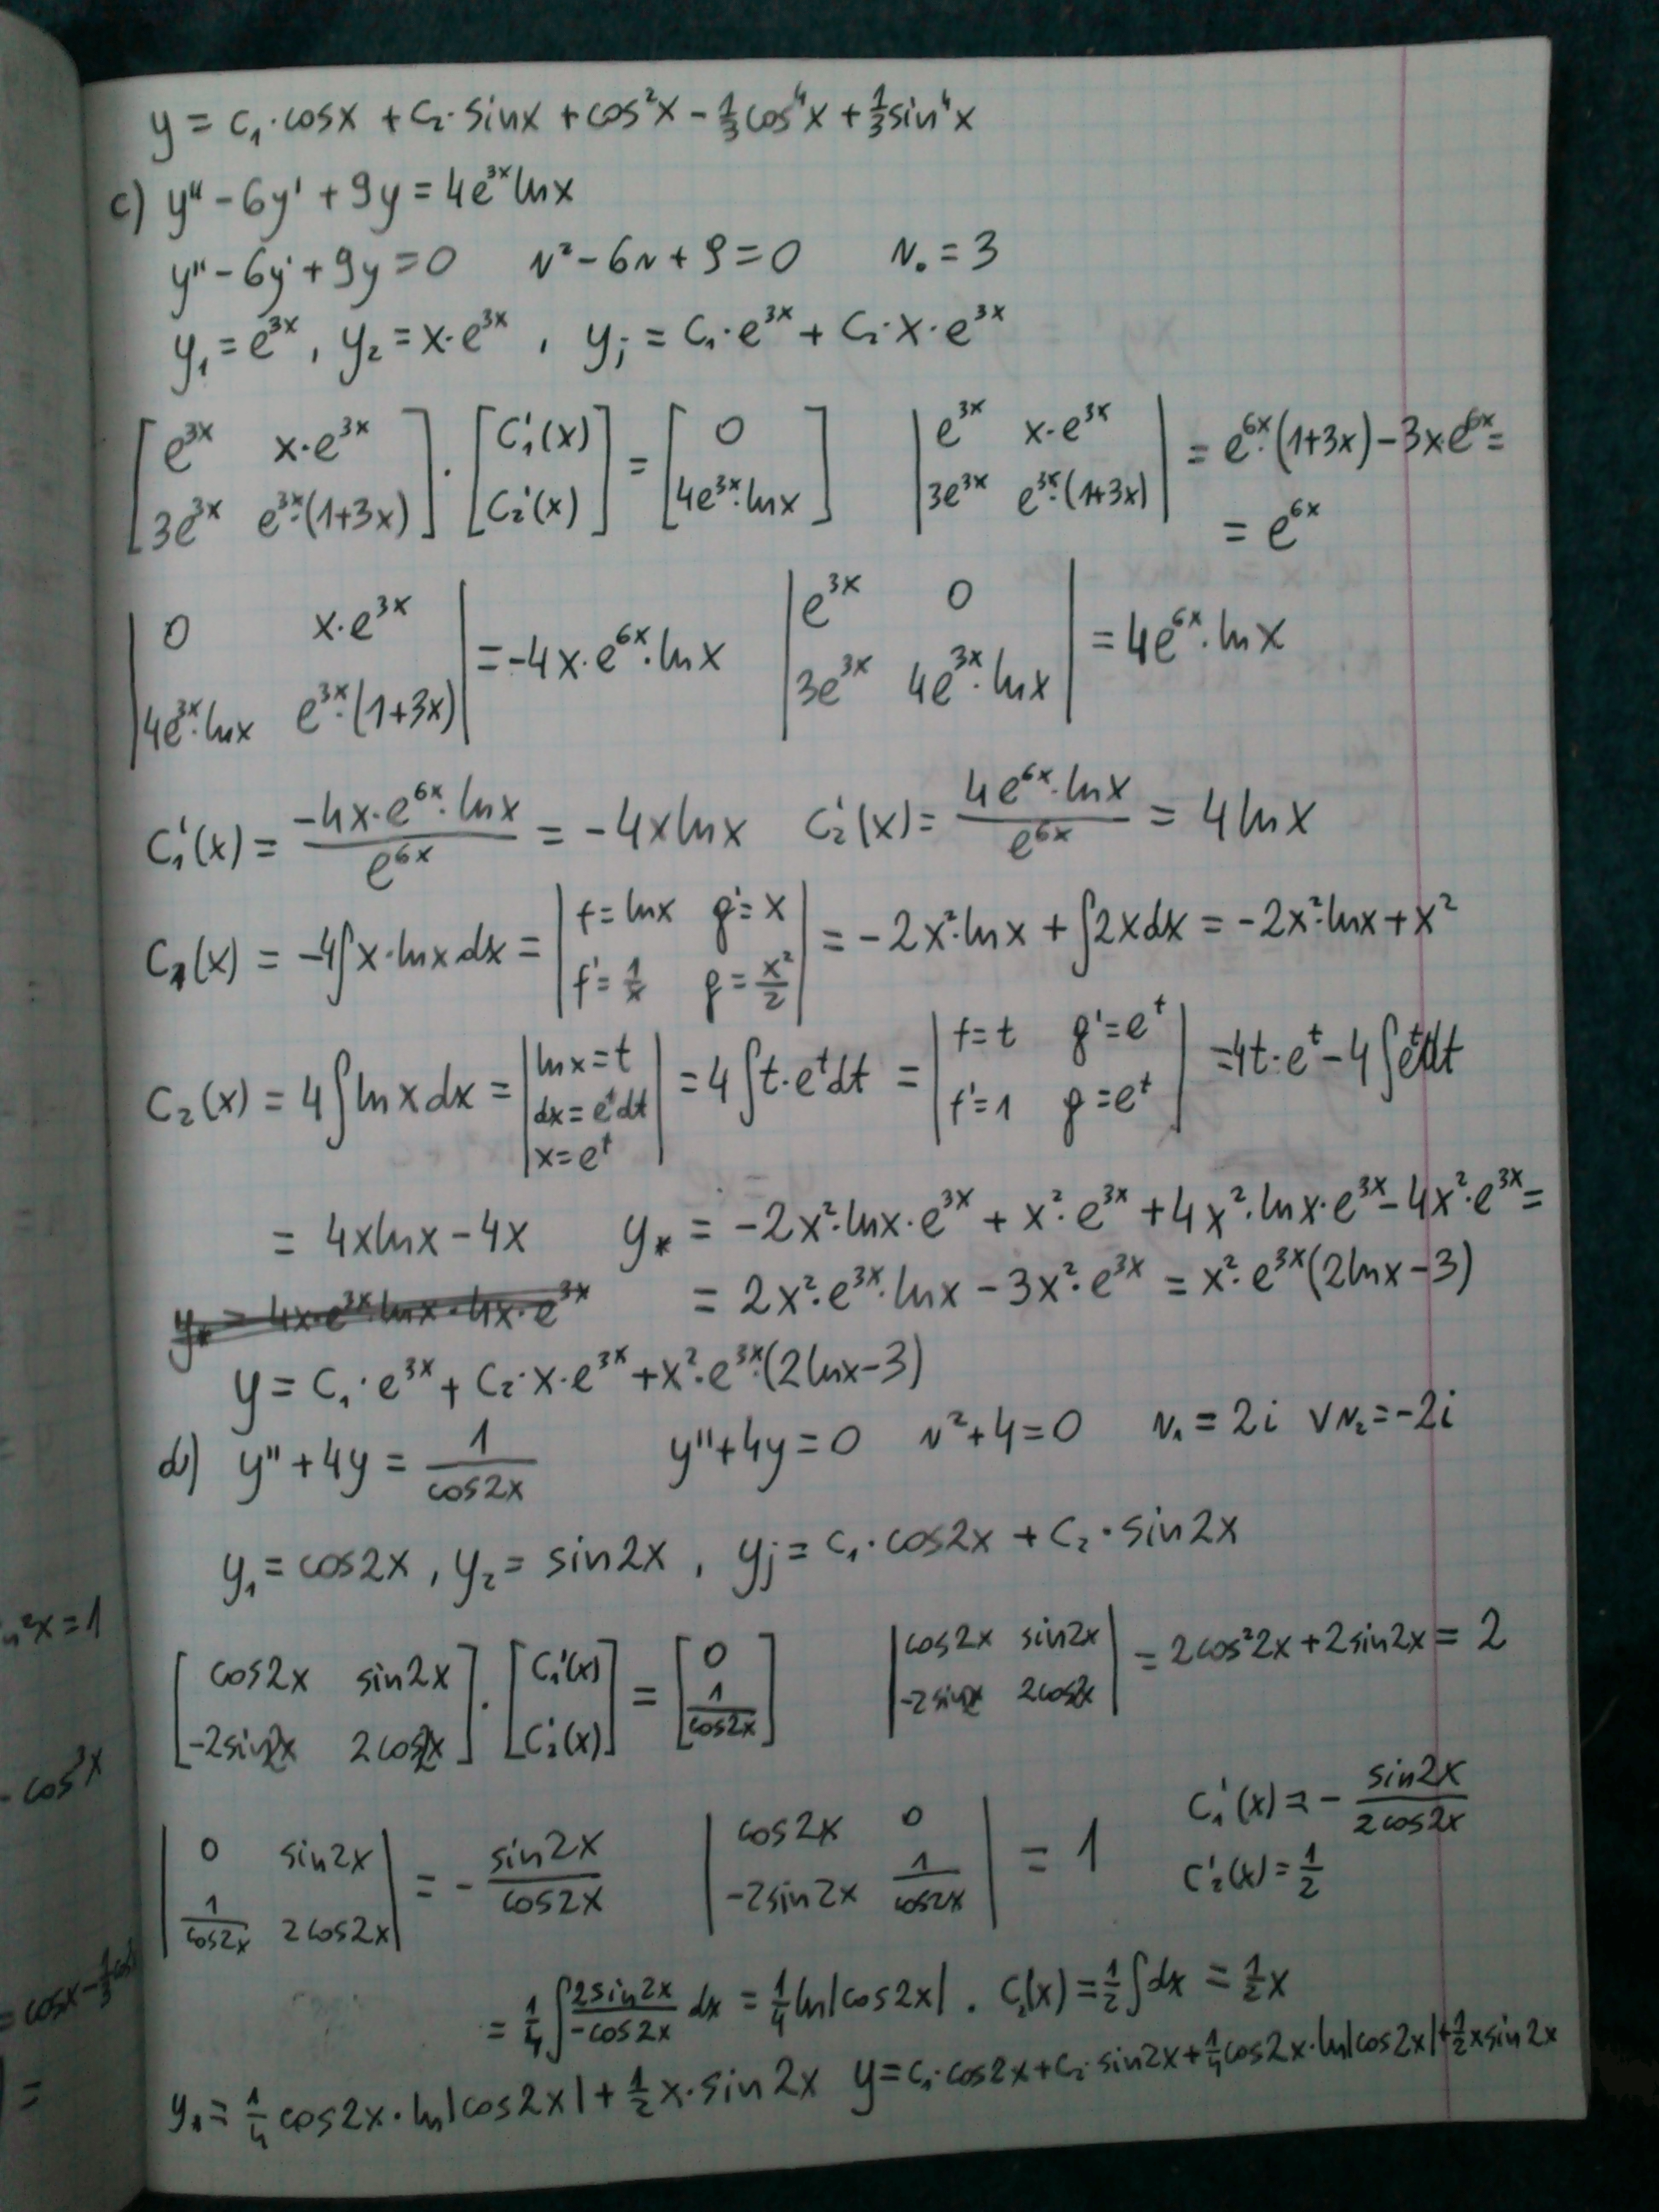 y = c₁·cosx + c₂·sinx + cos²x − 1/3 cos⁴x + 1/3 sin⁴x
c) y'' − 6y' + 9y = 4e^{3x} lnx
y'' − 6y' + 9y = 0   r² − 6r + 9 = 0   r₀ = 3
y₁ = e^{3x}, y₂ = x·e^{3x}, yj = C₁·e^{3x} + C₂·x·e^{3x}
[e^{3x}  x·e^{3x}; 3e^{3x}  e^{3x}·(1+3x)] · [C₁'(x); C₂'(x)] = [0; 4e^{3x}·lnx]   |e^{3x}  x·e^{3x}; 3e^{3x}  e^{3x}·(1+3x)| = e^{6x}·(1+3x) − 3x·e^{6x} =
= e^{6x}
|0  x·e^{3x}; 4e^{3x}·lnx  e^{3x}·(1+3x)| = −4x·e^{6x}·lnx   |e^{3x}  0; 3e^{3x}  4e^{3x}·lnx| = 4e^{6x}·lnx
C₁'(x) = (−4x·e^{6x}·lnx)/e^{6x} = −4xlnx   C₂'(x) = (4e^{6x}·lnx)/e^{6x} = 4lnx
C₁(x) = −4∫x·lnxdx = |f=lnx  g'=x; f'=1/x  g=x²/2| = −2x²·lnx + ∫2xdx = −2x²·lnx + x²
C₂(x) = 4∫lnxdx = |lnx=t; dx=e^t dt; x=e^t| = 4∫t·e^t dt = |f=t  g'=e^t; f'=1  g=e^t| = 4t·e^t − 4∫e^t dt
= 4xlnx − 4x   y* = −2x²·lnx·e^{3x} + x²·e^{3x} + 4x²·lnx·e^{3x} − 4x²·e^{3x} =
y* = 4x·e^{3x}·lnx − 4x·e^{3x}   = 2x²·e^{3x}·lnx − 3x²·e^{3x} = x²·e^{3x}(2lnx−3)
y = C₁·e^{3x} + C₂·x·e^{3x} + x²·e^{3x}·(2lnx−3)
d) y'' + 4y = 1/cos2x   y'' + 4y = 0   r² + 4 = 0   r₁ = 2i ∨ r₂ = −2i
y₁ = cos2x, y₂ = sin2x, yj = C₁·cos2x + C₂·sin2x
[cos2x  sin2x; −2sin2x  2cos2x] · [C₁'(x); C₂'(x)] = [0; 1/cos2x]   |cos2x  sin2x; −2sin2x  2cos2x| = 2cos²2x + 2sin2x = 2
|0  sin2x; 1/cos2x  2cos2x| = − sin2x/cos2x   |cos2x  0; −2sin2x  1/cos2x| = 1   C₁'(x) = − sin2x/2cos2x
C₂'(x) = 1/2
= 1/4 ∫ 2sin2x/−cos2x dx = 1/4 ln|cos2x|. C₂(x) = 1/2 ∫dx = 1/2 x
y* = 1/4 cos2x·ln|cos2x| + 1/2 x·sin2x   y = C₁·cos2x + C₂·sin2x + 1/4 cos2x·ln|cos2x| + 1/2 xsin2x
²x=1
- cos³x
= cosx − 1/3
=